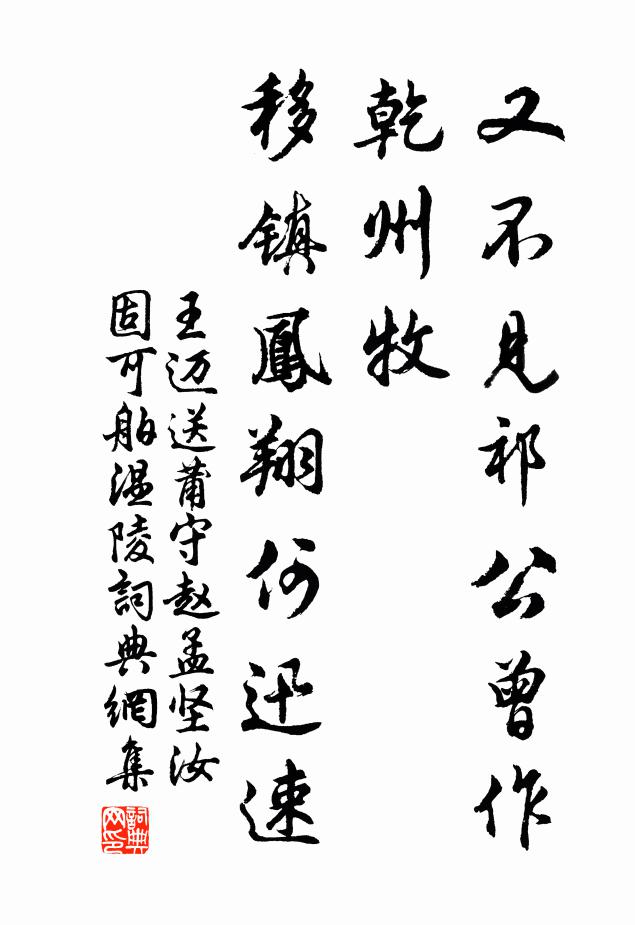 又不見祁公曾作
乾州牧
移鎮鳳翔何迅速
王迈送莆守赵孟坚汝
固可舶温陵詞典網集
詞典网印